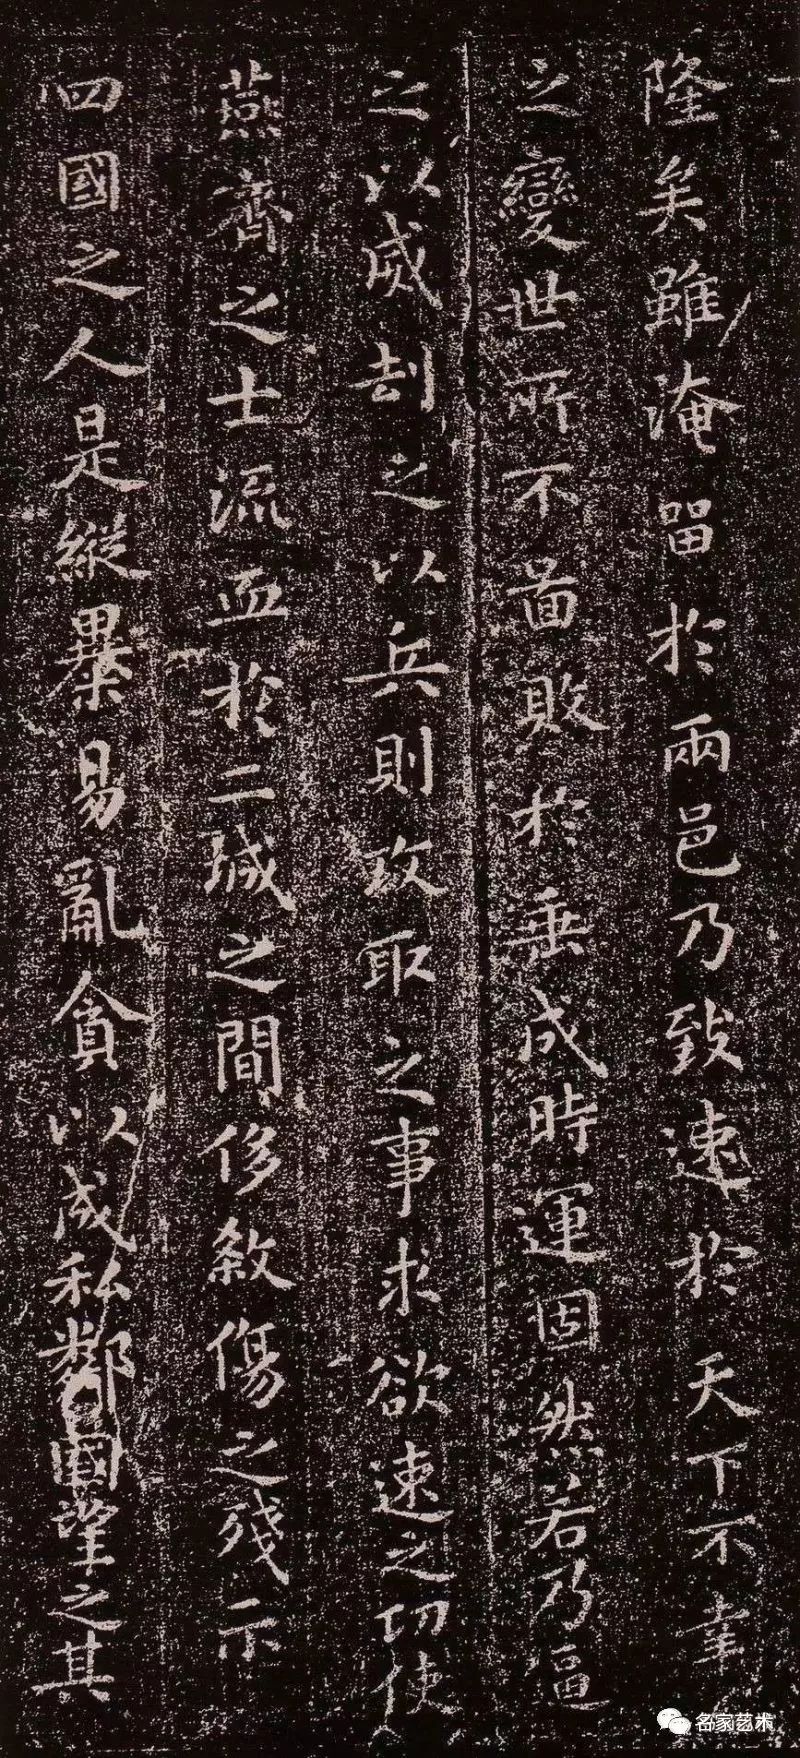 隆矣雖淹留於兩邑乃致速於天下不幸
之變世所不圖敗於垂成時運固然若乃逼
之以威劫之以兵則攻取之事求欲速之功使
燕齊之士流血於二城之間侈殺傷之殘示
四國之人是縱暴易亂貪以成私鄰國望之其
名家艺术